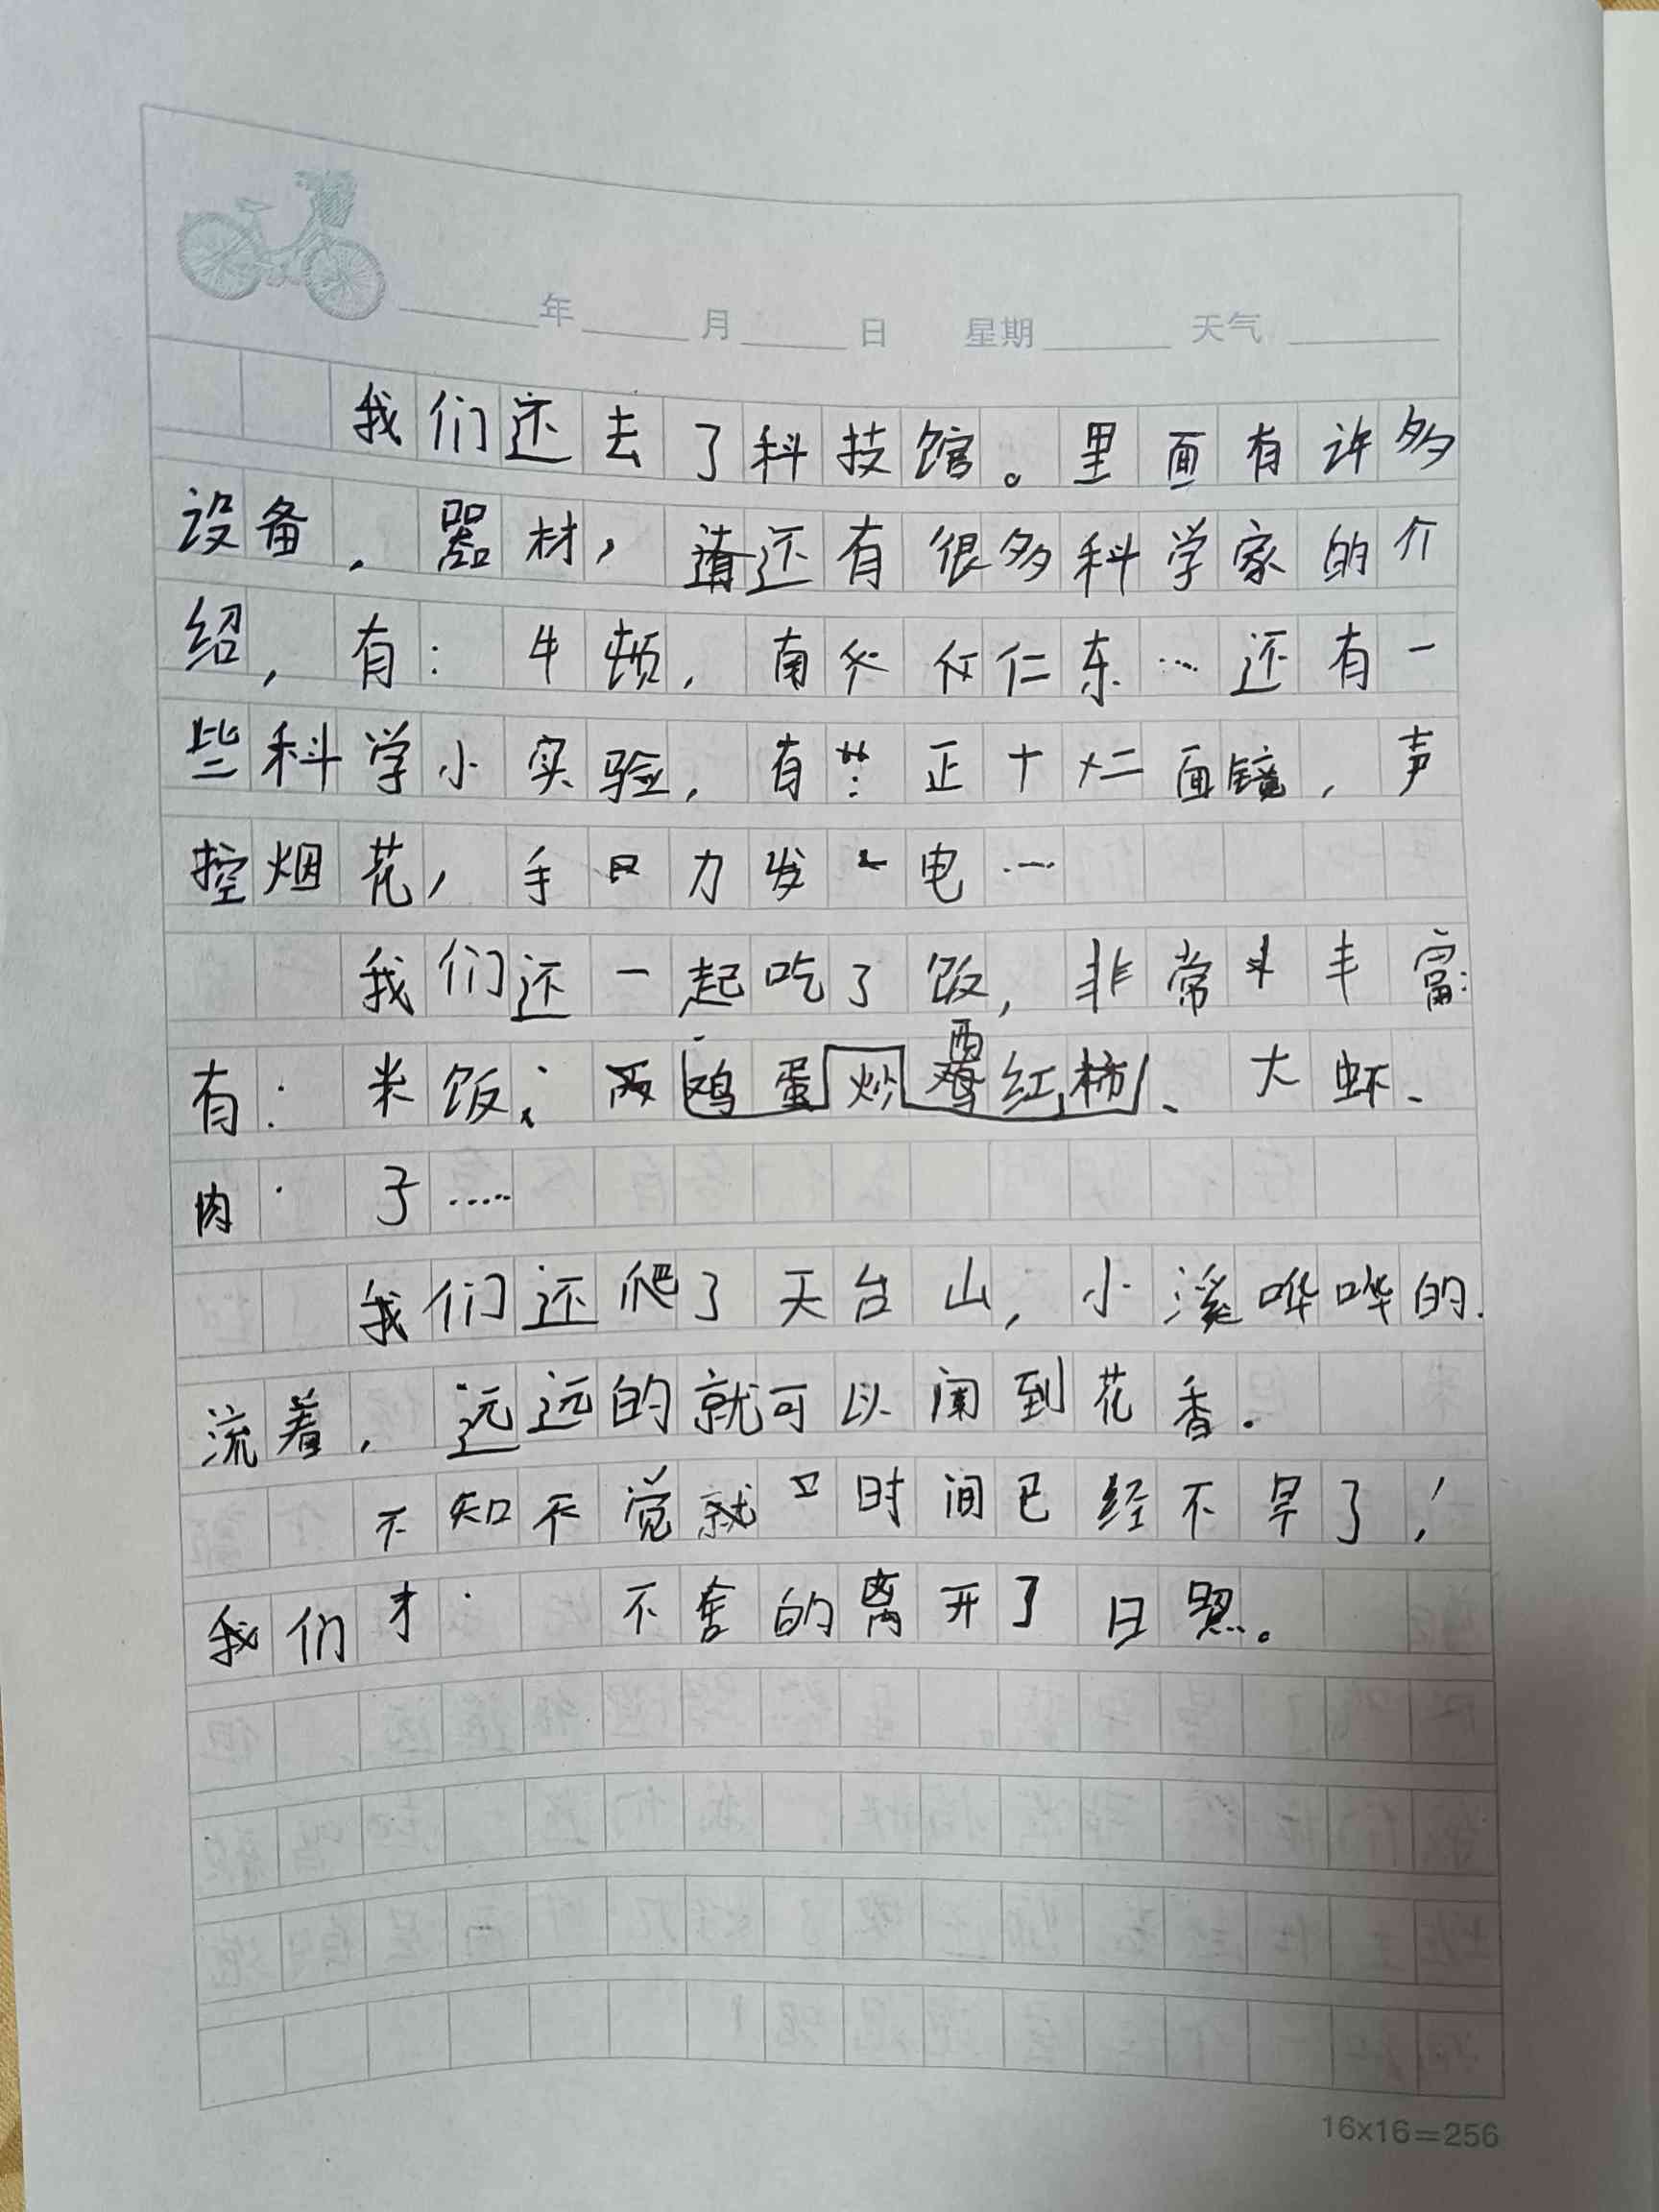 年 月 日 星期 天气
我们还去了科技馆。里面有许多
设备，器材，还有很多科学家的介
绍，有：牛顿，南仁东…还有一
些科学小实验，有：正十二面镜，声
控烟花，手力发电…
我们还一起吃了饭，非常丰富：
有：米饭；鸡蛋炒西红柿、大虾、
肉 子……
我们还爬了天台山，小溪哗哗的
流着，远远的就可以闻到花香。
不知不觉时间已经不早了！
我们才 不舍的离开了日照。
16x16=256